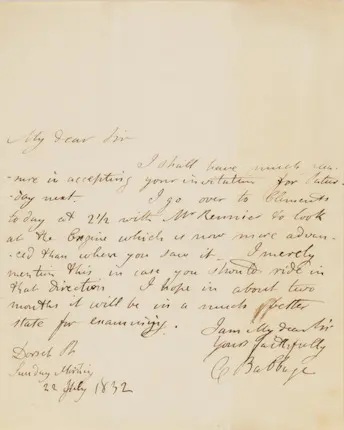 My dear Sir
I shall have much plea-
-sure in accepting your invitation for Satur-
-day next. I go over to Clements
to day at 2½ with Mr Rennie to look
at the Engine which is now more advan-
-ced than when you saw it. I merely
mention this in case you should ride in
that direction I hope in about two
months it will be in a much better
state for examining.
I am My dear Sir
Yours faithfully
C Babbage
Dorset St
Sunday Morning
22 July 1832